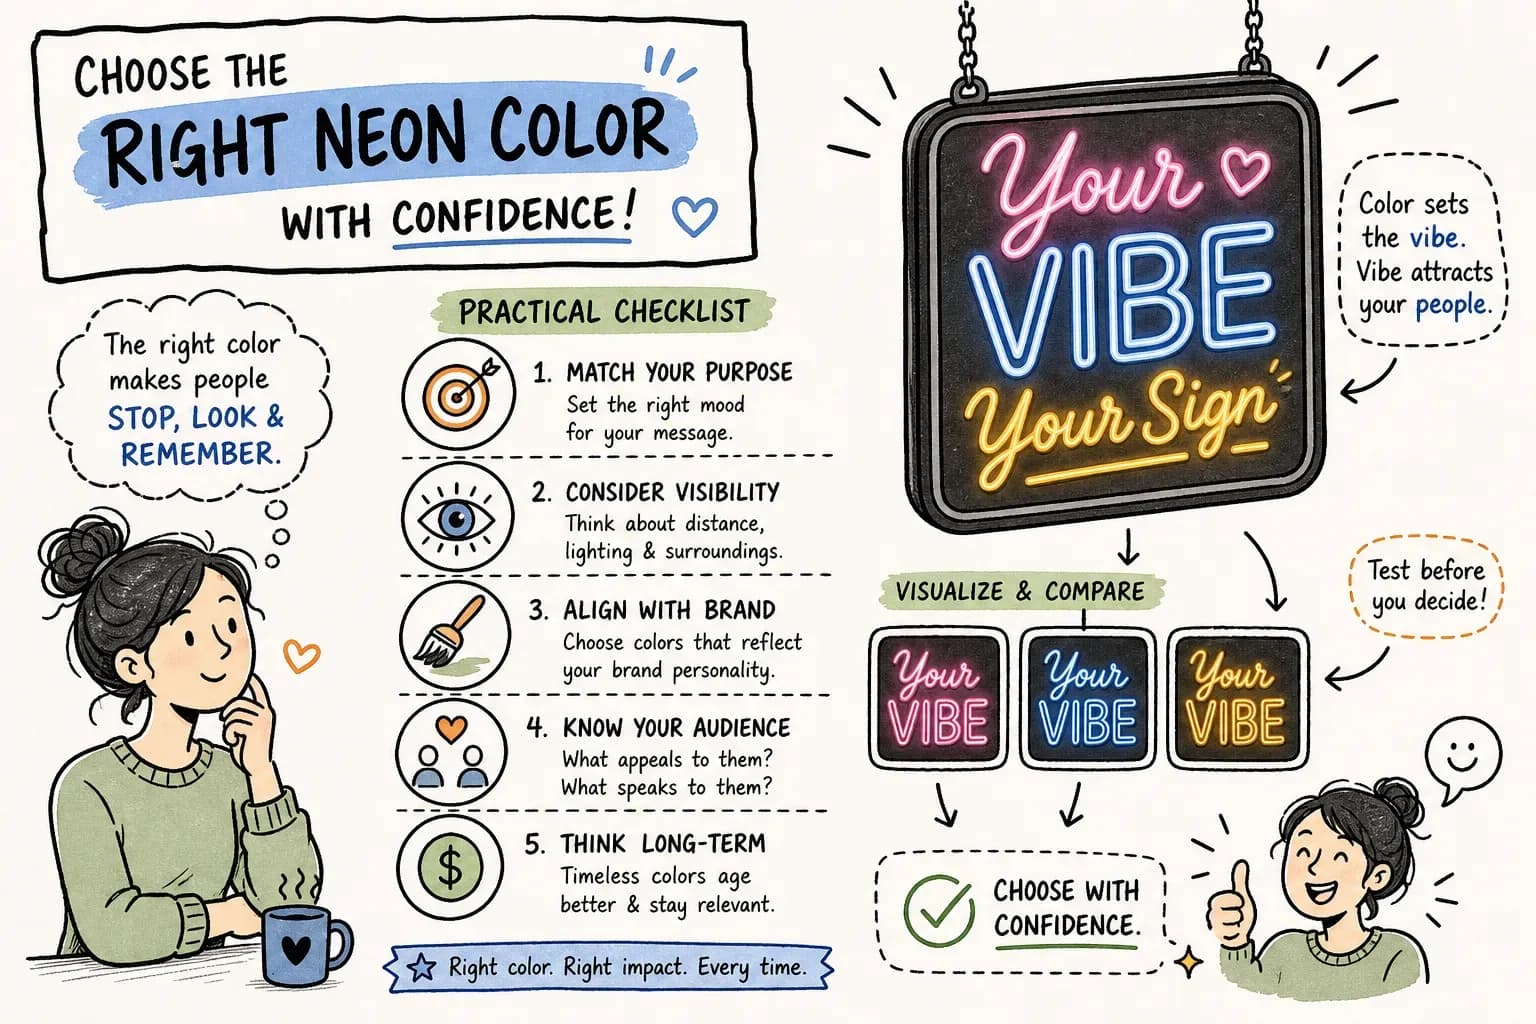 CHOOSE THE
RIGHT NEON COLOR
WITH CONFIDENCE!
The right color
makes people
STOP, LOOK &
REMEMBER.
PRACTICAL CHECKLIST
1. MATCH YOUR PURPOSE
Set the right mood
for your message.
2. CONSIDER VISIBILITY
Think about distance,
lighting & surroundings.
3. ALIGN WITH BRAND
Choose colors that reflect
your brand personality.
4. KNOW YOUR AUDIENCE
What appeals to them?
What speaks to them?
$
5. THINK LONG-TERM
Timeless colors age
better & stay relevant.
Right color. Right impact. Every time.
Your
VIBE
Your Sign
Color sets
the vibe.
Vibe attracts
your people.
VISUALIZE & COMPARE
Test before
you decide!
Your
VIBE
Your
VIBE
Your
VIBE
CHOOSE WITH
CONFIDENCE.